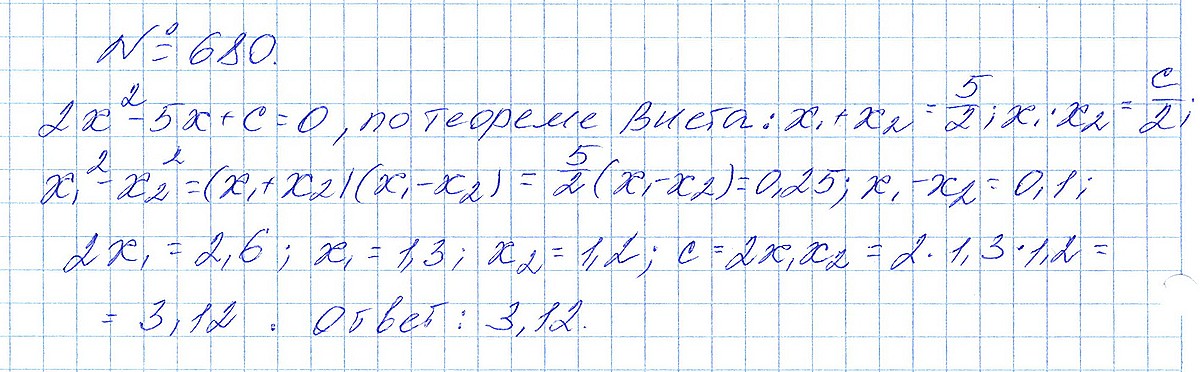 № 680.
2x² - 5x + c = 0, по теореме Виета: x₁ + x₂ = 5/2; x₁ · x₂ = c/2;
x₁² - x₂² = (x₁ + x₂)(x₁ - x₂) = 5/2 (x₁ - x₂) = 0,25; x₁ - x₂ = 0,1;
2x₁ = 2,6; x₁ = 1,3; x₂ = 1,2; c = 2x₁x₂ = 2 · 1,3 · 1,2 =
= 3,12. Ответ: 3,12.